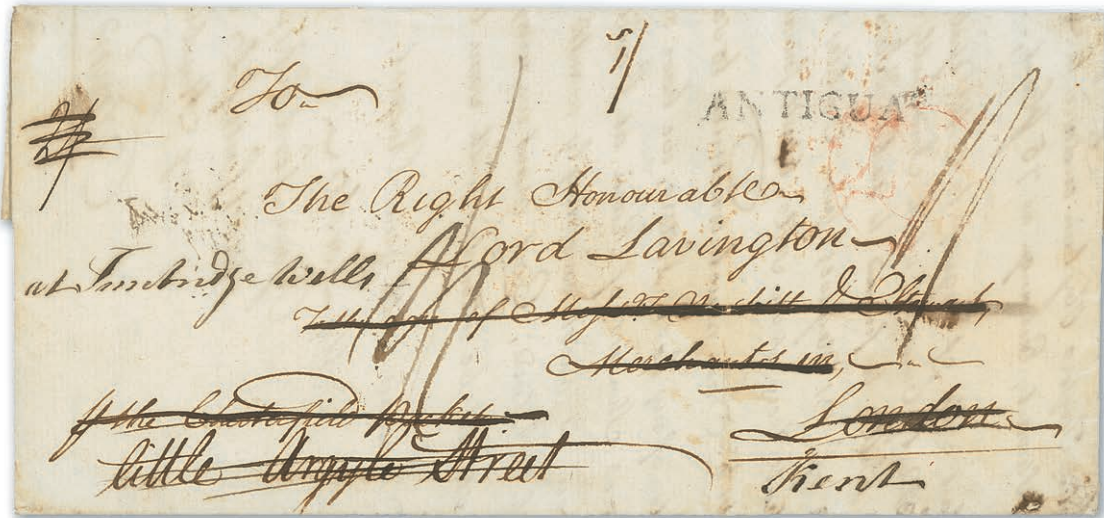 To
ANTIGUA
The Right Honourable
Lord Lavington
at Tunbridge Wells
To the care of Mess.rs & 
Merchants in,
London
the Chesterfield Packet
little Argyle Street
Kent